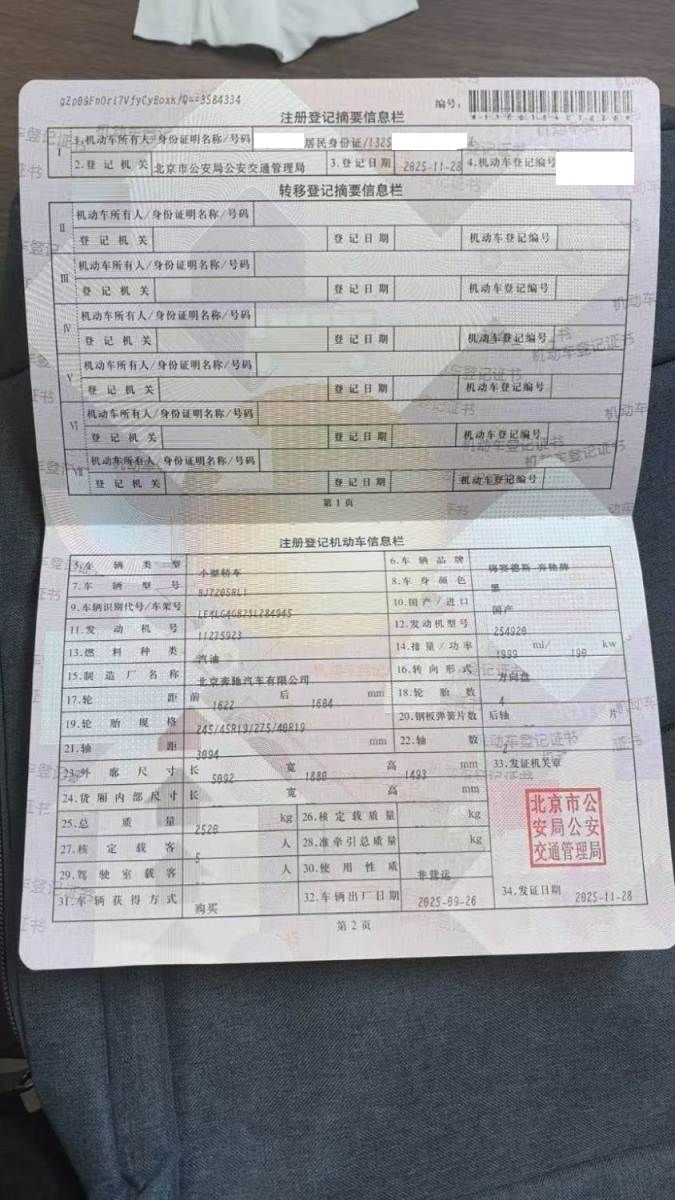 gZp09FnOri7VfyCyBoxk/Q==3584334
编号:
注册登记摘要信息栏
I 1.机动车所有人/身份证明名称/号码 居民身份证/1325
2.登记机关 北京市公安局公安交通管理局 3.登记日期 2025-11-28 4.机动车登记编号
转移登记摘要信息栏
II 机动车所有人/身份证明名称/号码
登记机关 登记日期 机动车登记编号
III 机动车所有人/身份证明名称/号码
登记机关 登记日期 机动车登记编号
IV 机动车所有人/身份证明名称/号码
登记机关 登记日期 机动车登记编号
V 机动车所有人/身份证明名称/号码
登记机关 登记日期 机动车登记编号
VI 机动车所有人/身份证明名称/号码
登记机关 登记日期 机动车登记编号
VII 机动车所有人/身份证明名称/号码
登记机关 登记日期 机动车登记编号
第1页
注册登记机动车信息栏
5.车辆类型 小型轿车 6.车辆品牌 梅赛德斯-奔驰牌
7.车辆型号 8.车身颜色 黑
9.车辆识别代号/车架号 10.国产/进口 国产
11.发动机号 11275923 12.发动机型号 254920
13.燃料种类 汽油 14.排量/功率 1999 ml/ kw
15.制造厂名称 北京奔驰汽车有限公司 16.转向形式 方向盘
17.轮距 前 1622 后 1604 mm 18.轮胎数 4
19.轮胎规格 245/45R19/275/40R19 20.钢板弹簧片数 后轴 片
21.轴距 3094 mm 22.轴数 2
23.外廓尺寸 长 5092 宽 1880 高 1493 mm 33.发证机关章
24.货厢内部尺寸 长 宽 高 mm
25.总质量 2520 kg 26.核定载质量 kg
27.核定载客 5 人 28.准牵引总质量 kg
29.驾驶室载客 人 30.使用性质 非营运
31.车辆获得方式 购买 32.车辆出厂日期 2025-09-26 34.发证日期 2025-11-28
北京市公
安局公安
交通管理局
第2页